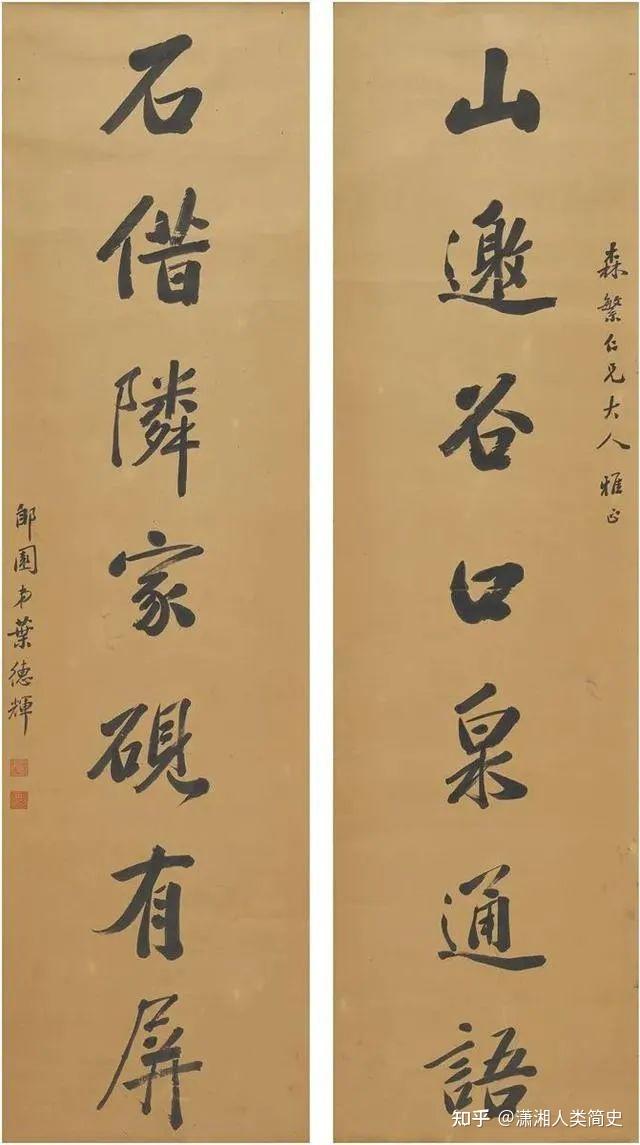 森繁仁兄大人雅正
山邀谷口泉通語
石借隣家硯有屏
郋園弟葉德輝
知乎 @潇湘人类简史